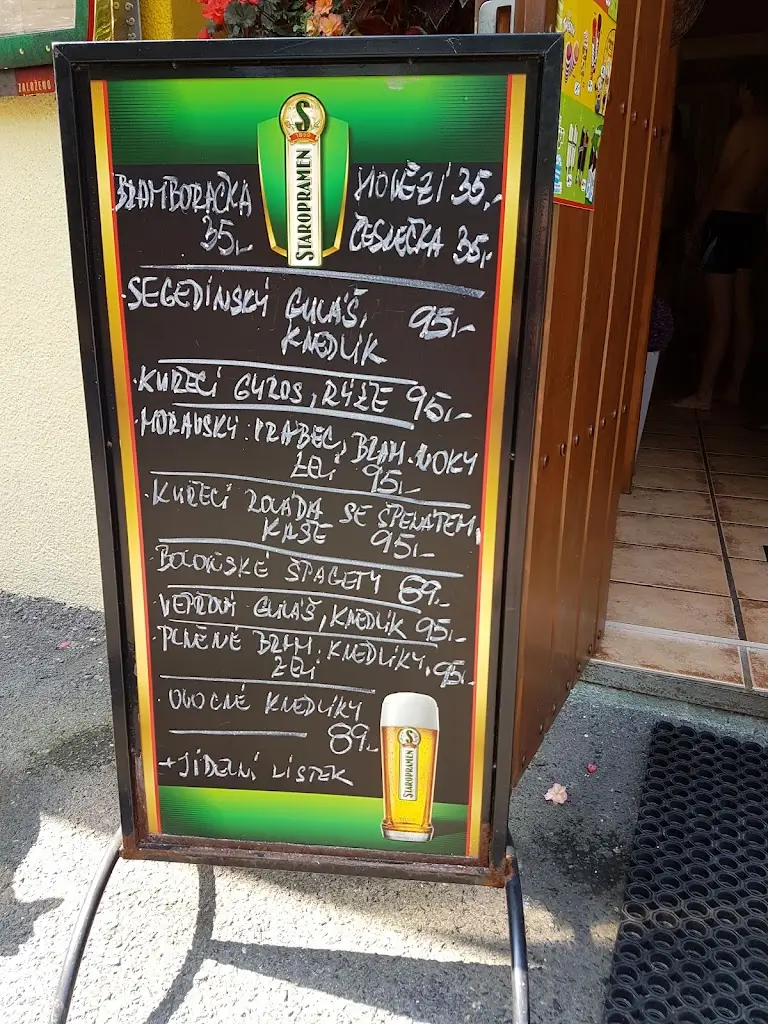 ZALOŽENO
STAROPRAMEN
BRAMBORAČKA
35,-
HOVĚZÍ 35,-
ČESNEČKA 35,-
· SEGEDÍNSKÝ GULÁŠ, 95,-
KNEDLÍK
· KUŘECÍ GYROS, RÝŽE 95,-
· MORAVSKÝ VRABEC, BRAM. NOKY
ZELÍ 95,-
· KUŘECÍ ROLÁDA SE ŠPENÁTEM,
KAŠE 95,-
· BOLOŇSKÉ ŠPAGETY 89,-
· VEPŘOVÝ GULÁŠ, KNEDLÍK 95,-
· PLNĚNÉ BRAM. KNEDLÍKY, 95,-
ZELÍ
· OVOCNÉ KNEDLÍKY
89,-
+ JÍDELNÍ LÍSTEK
STAROPRAMEN